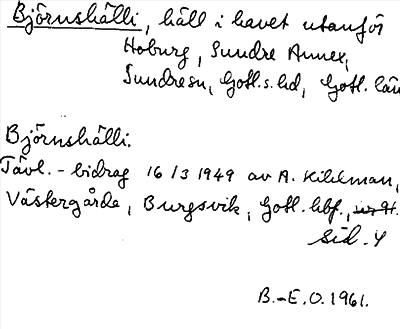 Björnshälli, häll i havet utanför
Hoburg, Sundre Annex,
Sundresn, Gotl. s. hd, Gotl. län
Björnshälli.
Tävl. - bidrag 16/3 1949 av A. Kihlman,
Västergårde, Burgsvik, Gotl. hbf.,
Sid. 4
B.-E.O. 1961.